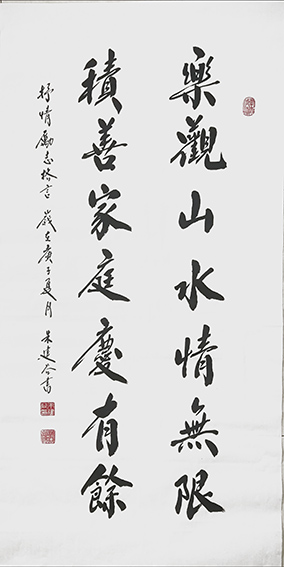 樂觀山水情無限
積善家庭慶有餘
抒情勵志格言 歲在庚子夏月 朱建合書